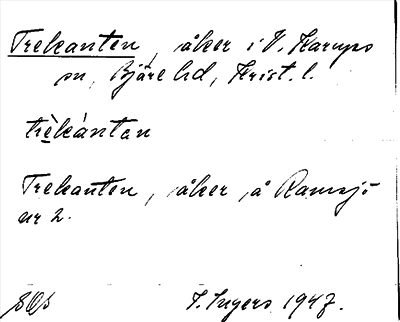 Trekanten, åker i V. Karups
sn, Bjäre hd, Krist. l.
trèkántan
Trekanten, åker å Ramsjö
nr 2.
I. Ingers 1947.